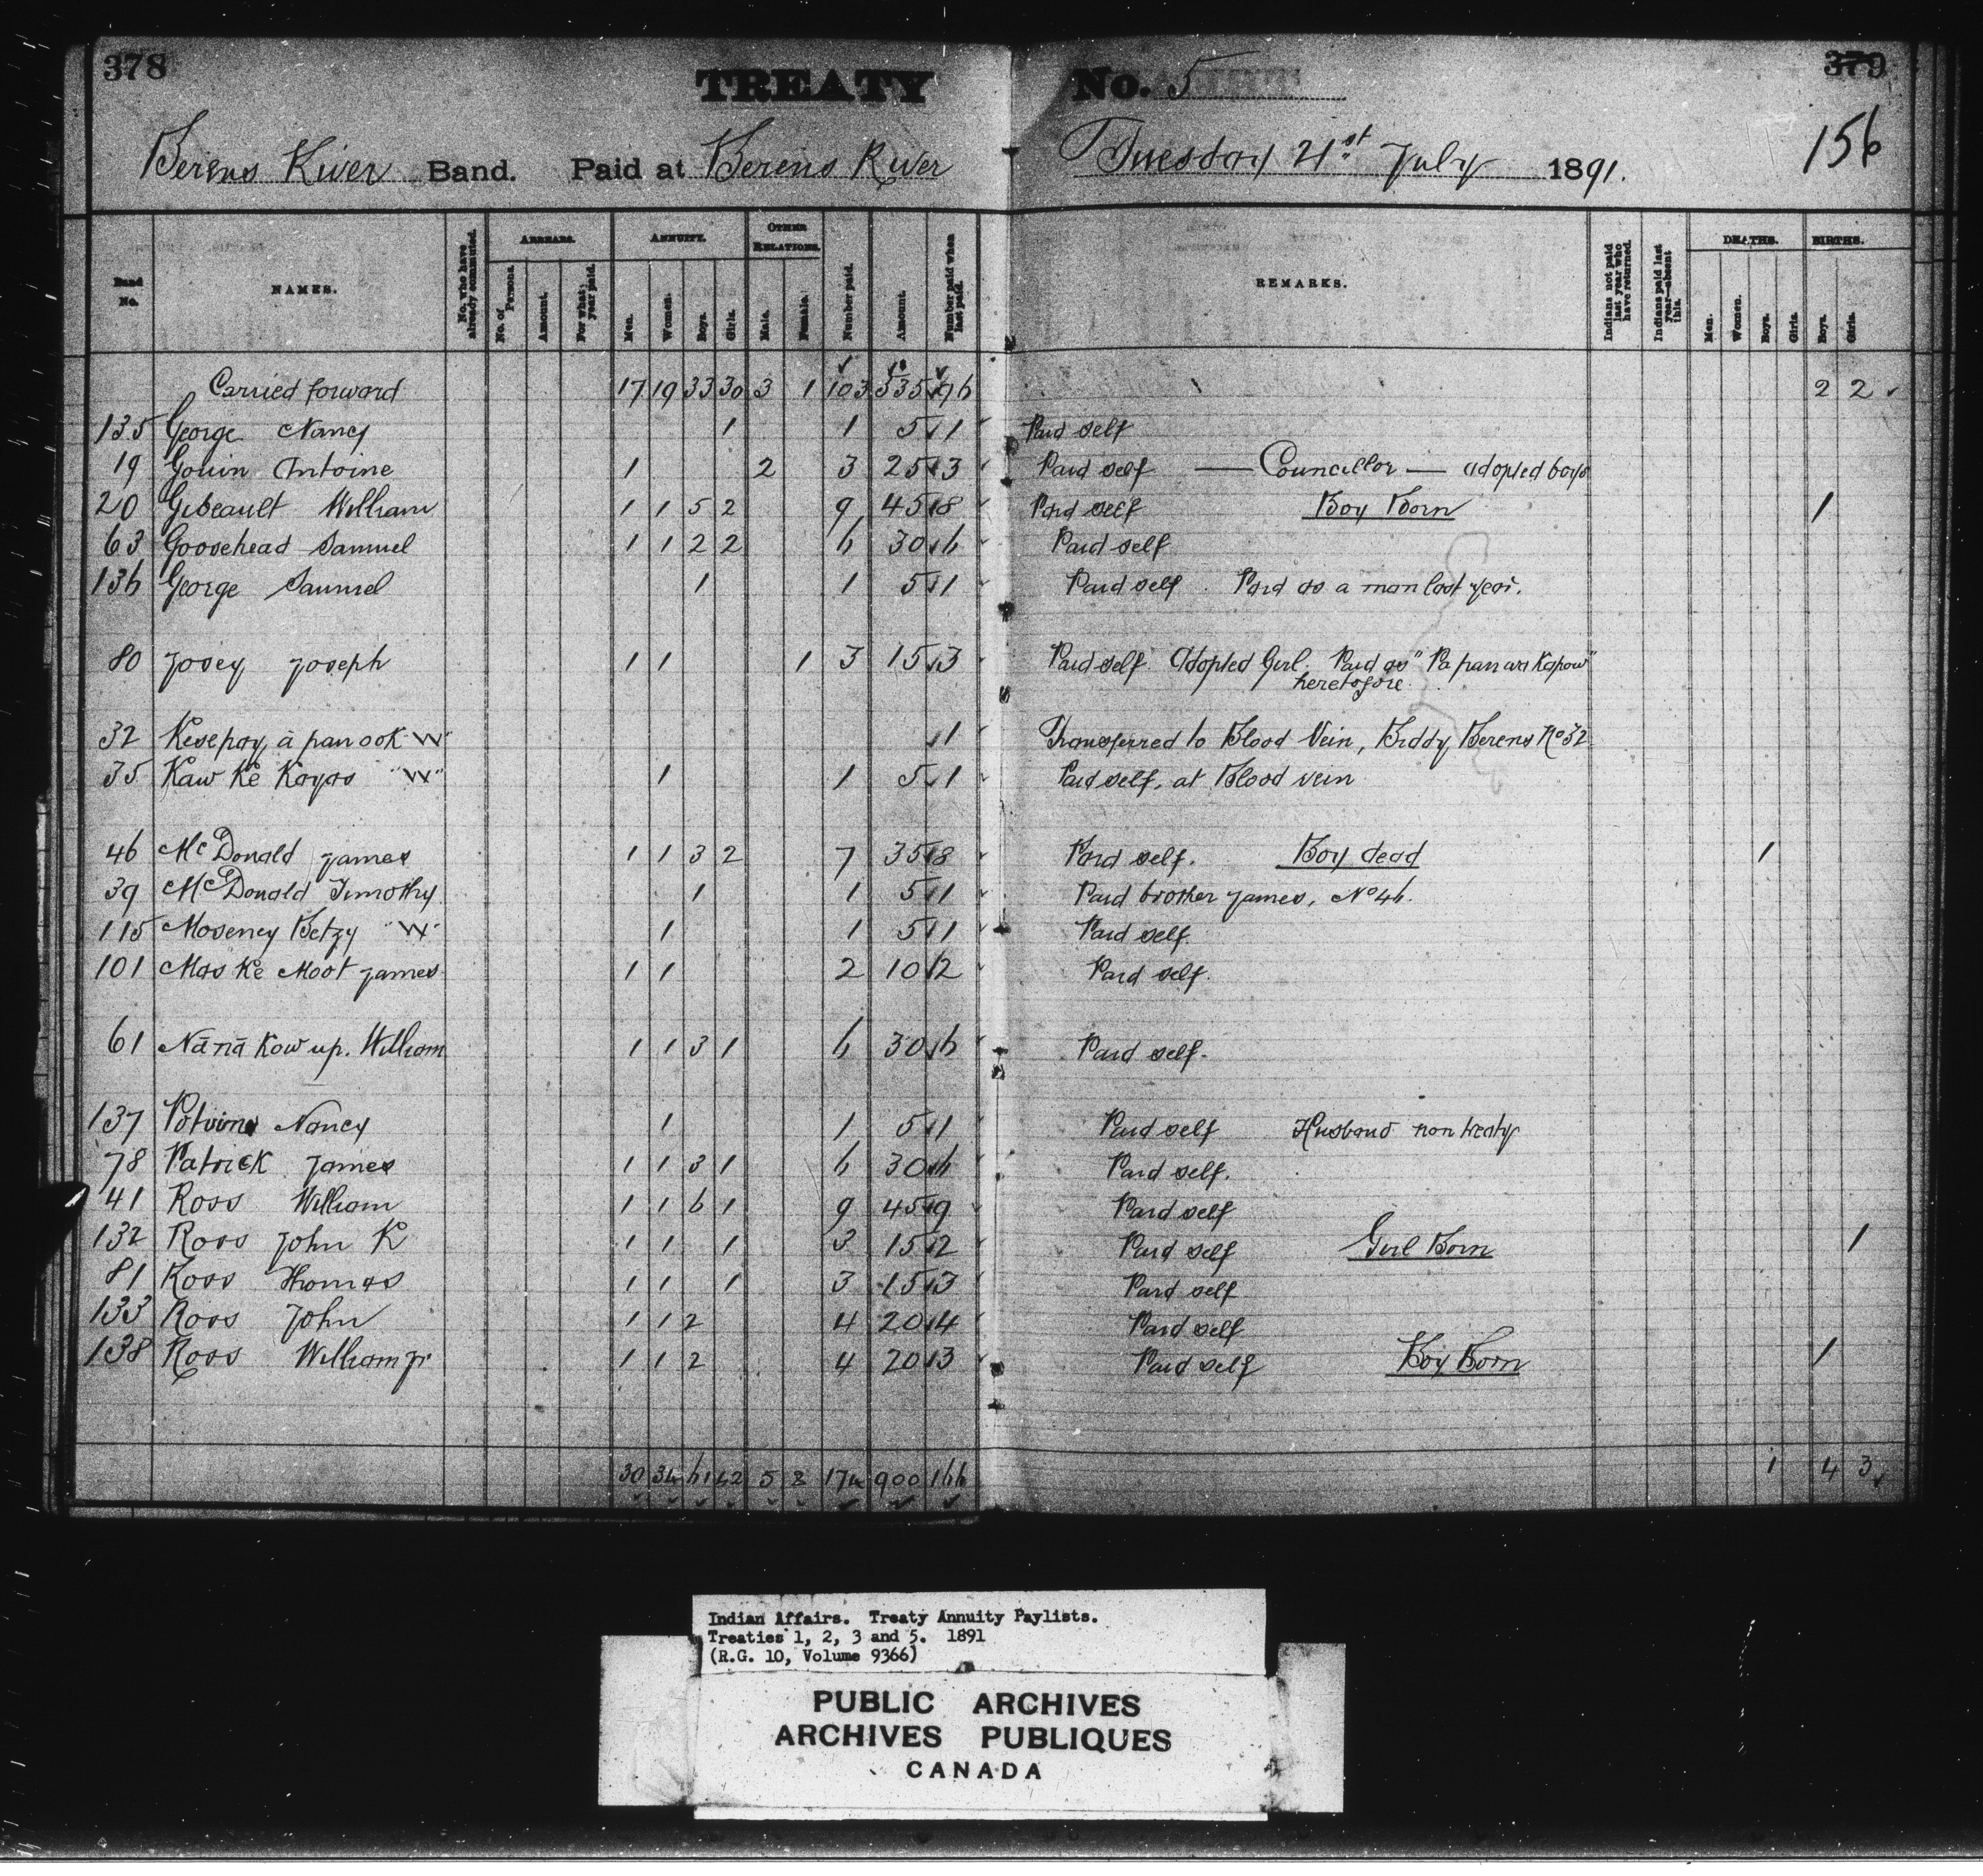 378 379
TREATY No. 5
156
Berens River Band. Paid at Berens River Tuesday 21st July 1891.
Band No. NAMES. No. who have already commuted. ARREARS. No. of Persons. Amount. For what year paid. ANNUITY. Men. Women. Boys. Girls. OTHER RELATIONS. Male. Female. Number paid. Amount. Number paid when last paid. REMARKS. Indians not paid last year who have returned. Indians paid last year—absent this. DEATHS. Men. Women. Boys. Girls. BIRTHS. Boys. Girls.
Carried forward 17 19 33 30 3 1 103 535 96 2 2
135 George Nancy 1 1 5 1 Paid self
19 Gouin Antoine 1 2 3 25 3 Paid self — Councillor — adopted boys
20 Gibeault William 1 1 5 2 9 45 8 Paid self Boy Born 1
63 Goosehead Samuel 1 1 2 2 6 30 6 Paid self
136 George Samuel 1 1 5 1 Paid self. Paid as a man last year.
80 Josey Joseph 1 1 1 3 15 3 Paid self. Adopted Girl. Paid as "Pa pan wa Kapow"
heretofore.
32 Kesepay, a pan ook "W" 1 Transferred to Blood Vein, Biddy Berens No 32
35 Kaw Ke Kayas "W" 1 1 5 1 Paid self, at Blood vein
46 McDonald James 1 1 3 2 7 35 8 Paid self. Boy dead 1
39 McDonald Timothy 1 1 5 1 Paid brother James, No 46.
115 Moseney Betzy "W" 1 1 5 1 Paid self.
101 Mas Ke Moot James 1 1 2 10 2 Paid self.
61 Nā nā Kow up. William 1 1 3 1 6 30 6 Paid self.
137 Potvin Nancy 1 1 5 1 Paid self Husband non treaty
78 Patrick James 1 1 3 1 6 30 6 Paid self.
41 Ross William 1 1 6 1 9 45 9 Paid self
132 Ross John K 1 1 1 3 15 2 Paid self Girl Born 1
81 Ross Thomas 1 1 1 3 15 3 Paid self
133 Ross John 1 1 2 4 20 4 Paid self
138 Ross William Jr 1 1 2 4 20 3 Paid self Boy Born 1
30 34 61 42 5 2 174 900 166 1 4 3
Indian Affairs. Treaty Annuity Paylists.
Treaties 1, 2, 3 and 5. 1891
(R.G. 10, Volume 9366)
PUBLIC ARCHIVES
ARCHIVES PUBLIQUES
CANADA